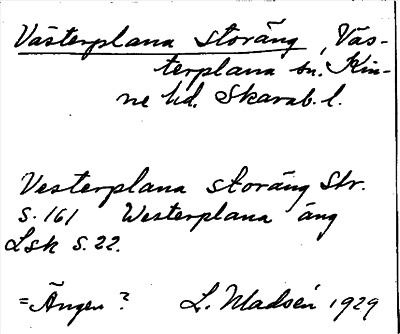 Västerplana storäng, Väs-
terplana sn. Kin-
ne hd. Skarab. l.
Vesterplana storäng Str.
S. 161 Westerplana äng
Lsk S. 22.
= Ängen? L. Madsén 1929